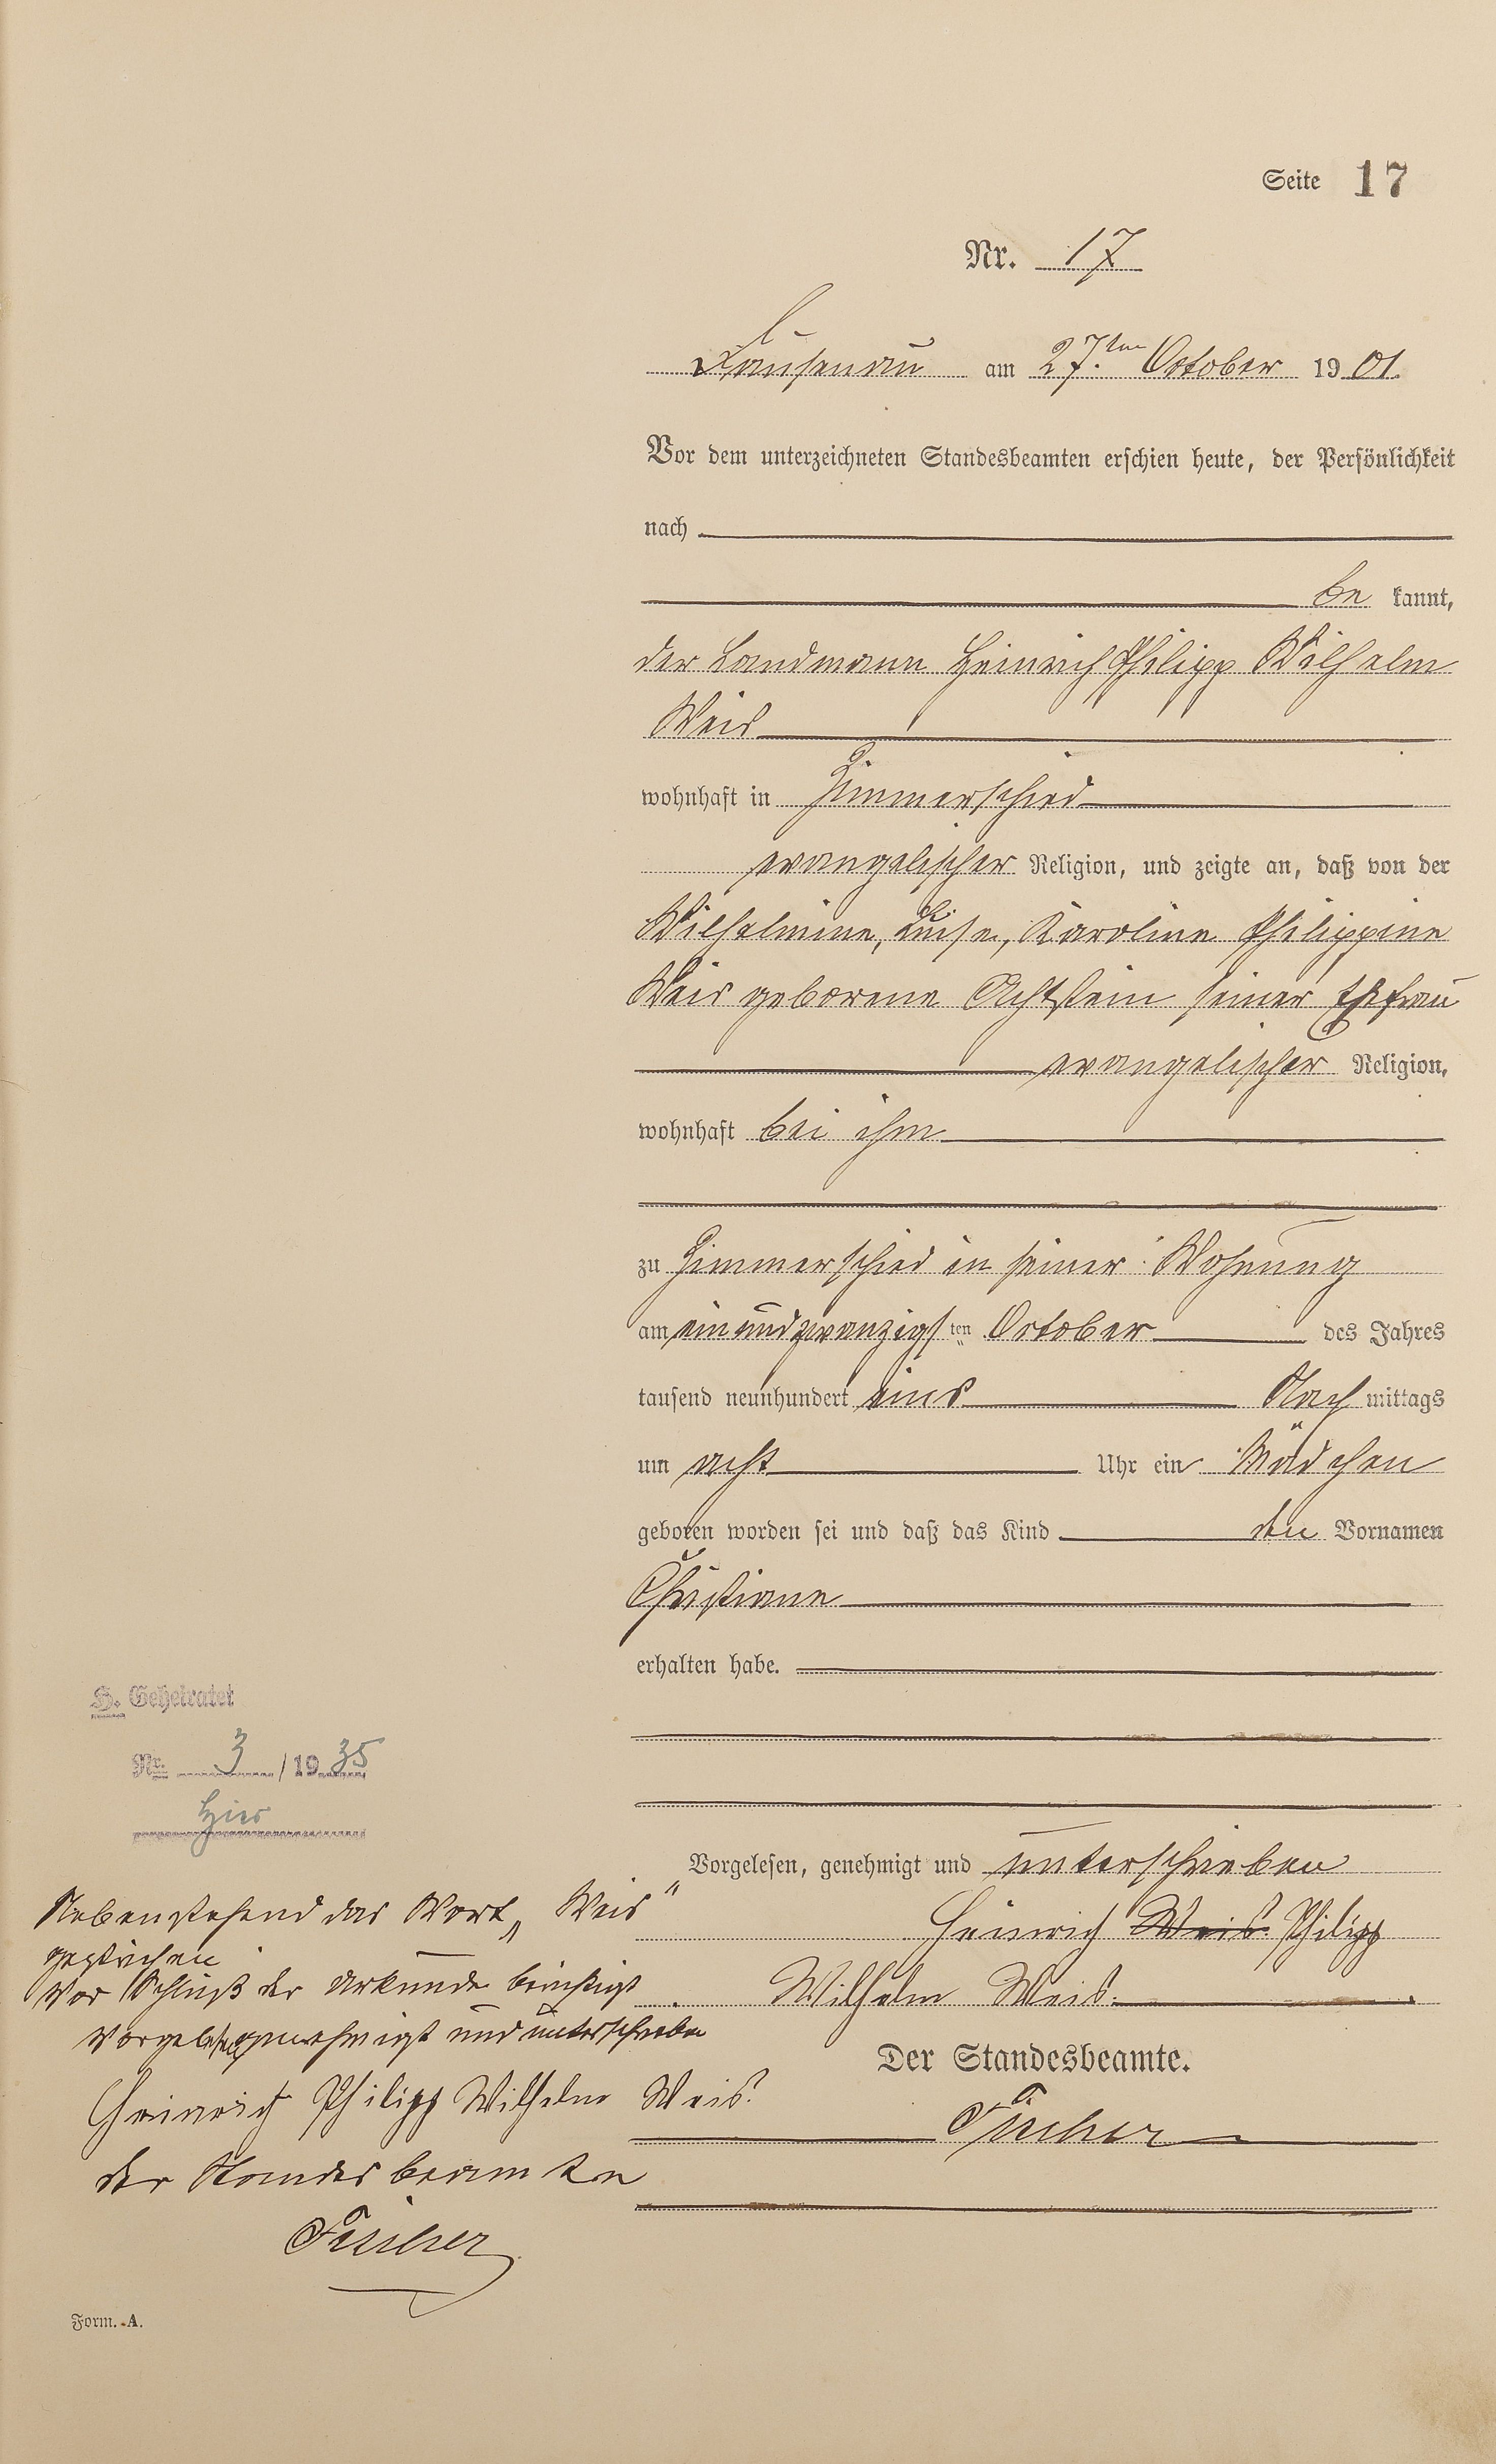 Seite 17
Nr. 17
Dausenau am 27.ten October 1901.
Vor dem unterzeichneten Standesbeamten erschien heute, der Persönlichkeit
nach
be kannt,
der Landmann Heinrich Philipp Wilhelm
Weis
wohnhaft in Zimmerschied
evangelischer Religion, und zeigte an, daß von der
Wilhelmine, Luise, Karoline Philippine
Weis geborene Achtstein seiner Ehefrau
evangelischer Religion,
wohnhaft bei ihm
zu Zimmerschied in seiner Wohnung
am einundzwanzigsten October des Jahres
tausend neunhundert eins Nach mittags
um acht Uhr ein Mädchen
geboren worden sei und daß das Kind den Vornamen
Christiane
erhalten habe.
H. Geheiratet
Nr. 3 / 1935
hier
Vorgelesen, genehmigt und unterschrieben
Heinrich Weis Philipp
Wilhelm Weis.
Der Standesbeamte.
Fischer
Nebenstehend das Wort „Weis"
gestrichen
Vor Schluß der Urkunde berichtigt
Vorgelesen genehmigt und unterschrieben
Heinrich Philipp Wilhelm Weis.
der Standesbeamte
Fischer
Form. A.